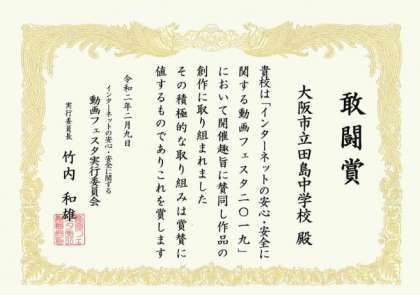 敢闘賞
大阪市立田島中学校 殿
貴校は「インターネットの安心・安全に
関する動画フェスタ二〇一九」
において開催趣旨に賛同し作品の
創作に取り組まれました
その積極的な取り組みは賞賛に
値するものでありこれを賞します
令和二年二月九日
インターネットの安心・安全に関する
動画フェスタ実行委員会
実行委員長 竹内 和雄